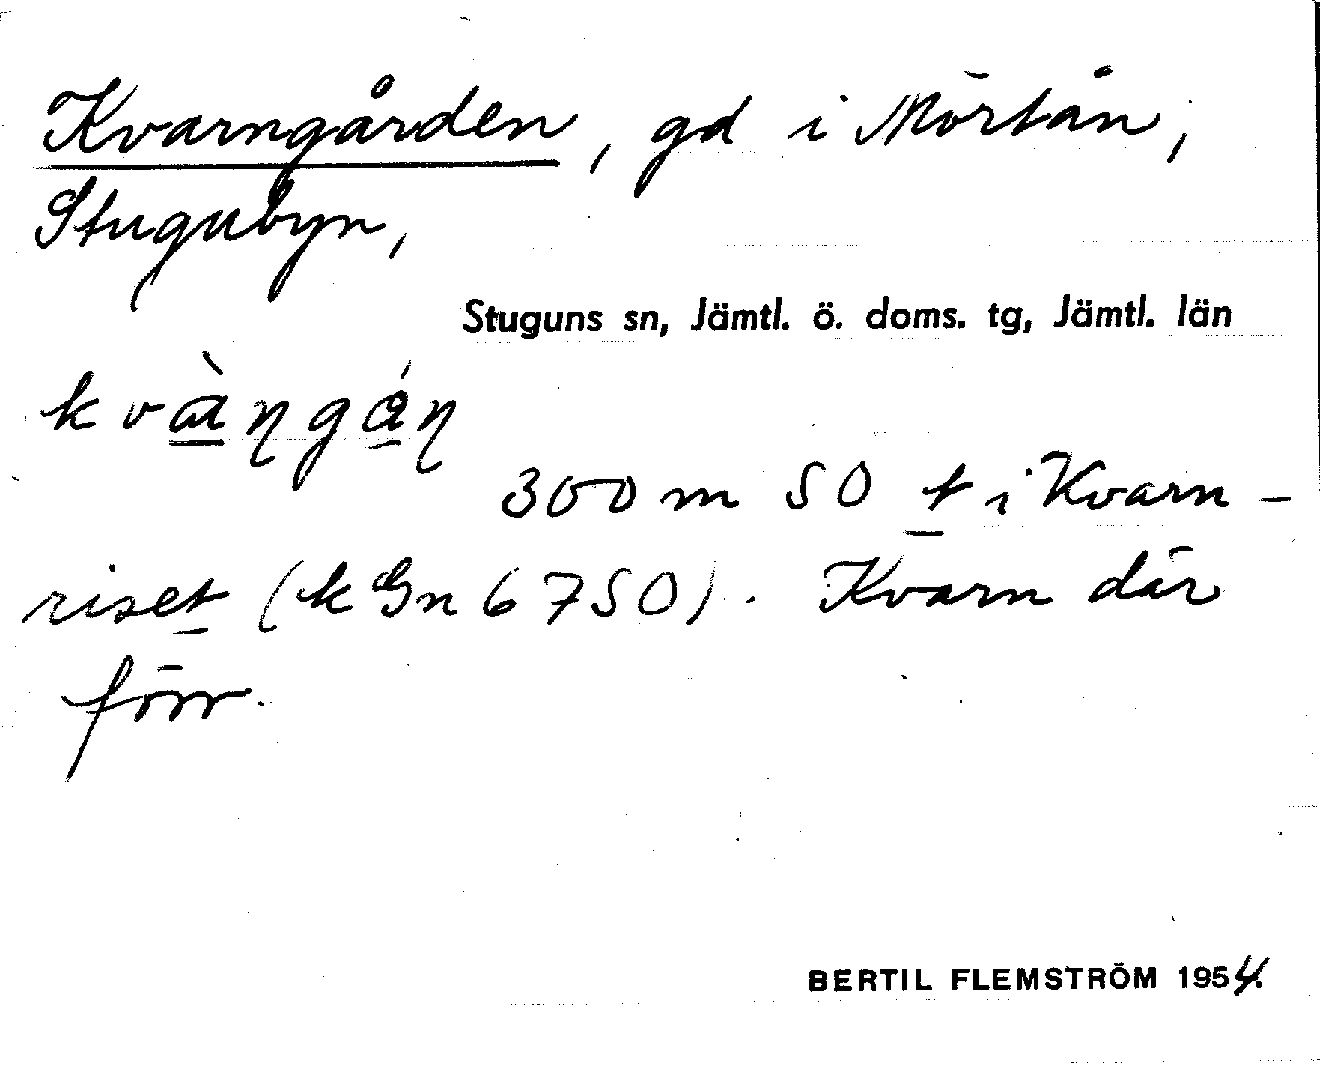 Kvarngården, gd i Mörtån,
Stugubyn,
Stuguns sn, Jämtl. ö. doms. tg, Jämtl. län
300 m SO t i Kvarn-
riset (k Gn 6750). Kvarn där
förr.
BERTIL FLEMSTRÖM 1954.